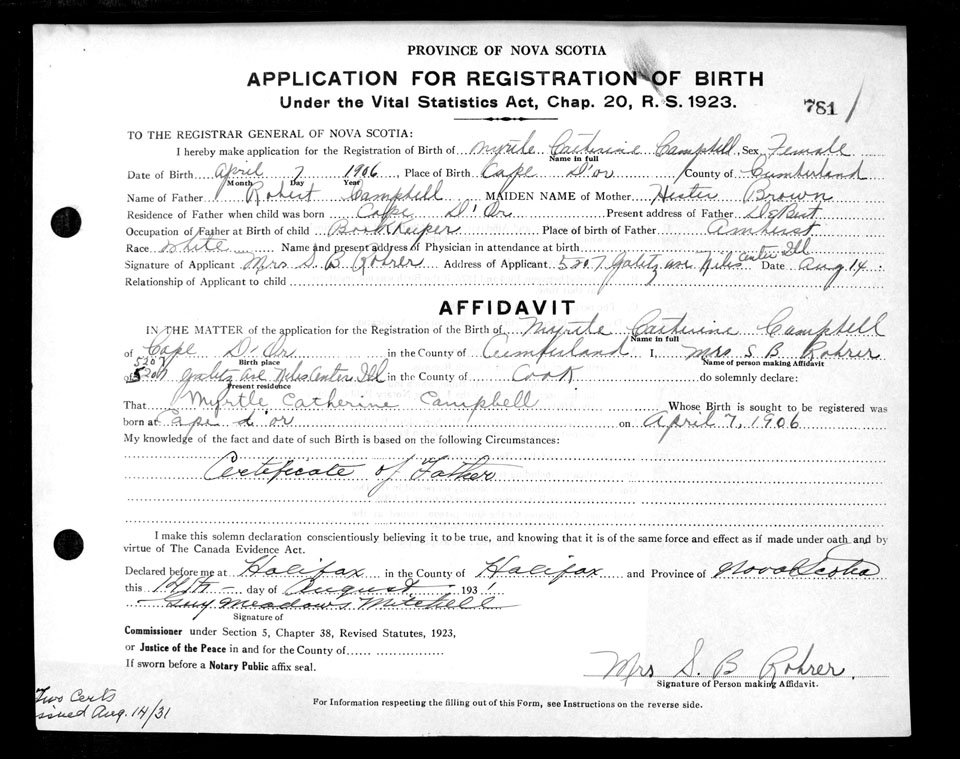 PROVINCE OF NOVA SCOTIA
APPLICATION FOR REGISTRATION OF BIRTH
Under the Vital Statistics Act, Chap. 20, R. S. 1923.
781
TO THE REGISTRAR GENERAL OF NOVA SCOTIA:
I hereby make application for the Registration of Birth of Myrtle Catherine Campbell, Sex Female
Name in full
Date of Birth April 7 1906, Place of Birth Cape D'or, County of Cumberland
Month Day Year
Name of Father Robert Campbell MAIDEN NAME of Mother Hester Brown
Residence of Father when child was born Cape D'Or Present address of Father DeBert
Occupation of Father at Birth of child Bookkeeper Place of birth of Father Amherst
Race white Name and present address of Physician in attendance at birth
Signature of Applicant Mrs S B Rohrer Address of Applicant 5207 Galitz ave Niles Center Ill Date Aug 14
Relationship of Applicant to child
AFFIDAVIT
IN THE MATTER of the application for the Registration of the Birth of Myrtle Catherine Campbell
Name in full
of Cape D'Or in the County of Cumberland I, Mrs S B Rohrer
Birth place Name of person making Affidavit
of 5207 Galitz ave Niles Center Ill in the County of Cook do solemnly declare:
Present residence
That Myrtle Catherine Campbell Whose Birth is sought to be registered was
born at Cape d'or on April 7, 1906
My knowledge of the fact and date of such Birth is based on the following Circumstances:
Certificate of Father
I make this solemn declaration conscientiously believing it to be true, and knowing that it is of the same force and effect as if made under oath and by
virtue of The Canada Evidence Act.
Declared before me at Halifax in the County of Halifax and Province of Nova Scotia
this 14th day of August 1931
Guy Meadows Mitchell
Signature of
Commissioner under Section 5, Chapter 38, Revised Statutes, 1923,
or Justice of the Peace in and for the County of
If sworn before a Notary Public affix seal.
Mrs S. B Rohrer.
Signature of Person making Affidavit.
Two Certs
issued Aug. 14/31
For Information respecting the filling out of this Form, see Instructions on the reverse side.